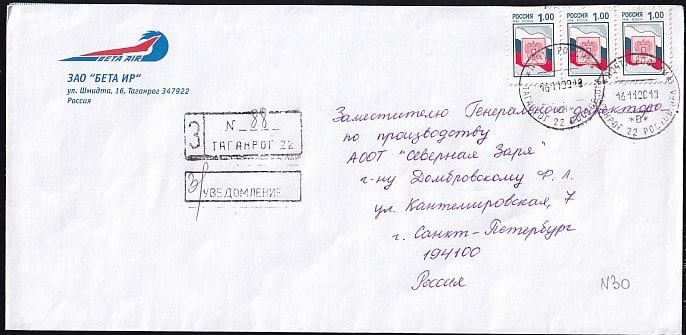 BETA AIR
ЗАО "БЕТА ИР"
ул. Шмидта, 16, Таганрог 347922
Россия
РОССИЯ 1.00
РОССИЯ 1.00
РОССИЯ 1.00
З
N 88
ТАГАНРОГ 22
УВЕДОМЛЕНИЕ
Заместителю Генерального директора
по производству
АООТ "Северная Заря"
г-ну Домбровскому Ф. Л.
ул. Кантемировская, 7
г. Санкт-Петербург
194100
Россия
N30